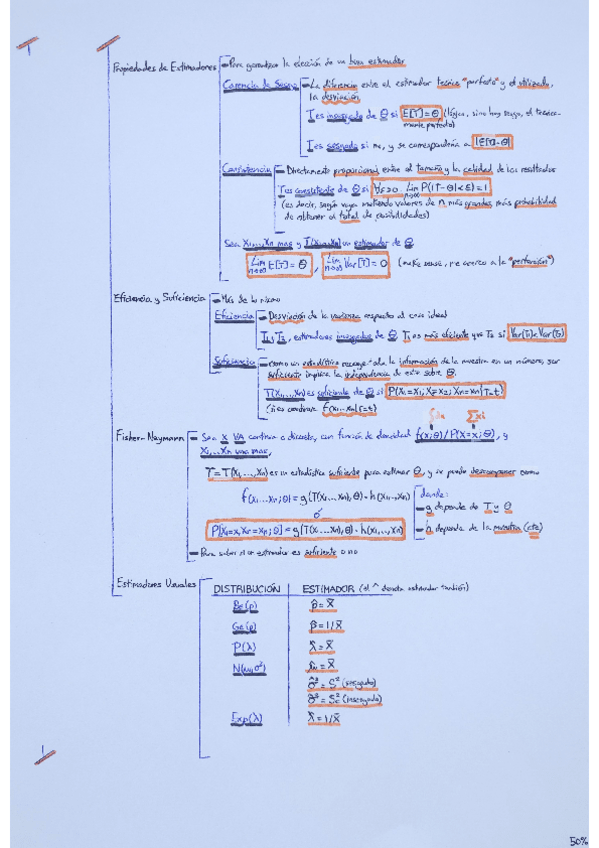 Propiedades de Estimadores
Para garantizar la elección de un buen estimador
Carencia de Sesgo
La diferencia entre el estimador teórico "perfecto" y el utilizado,
la desviación
T es insesgado de θ si E[T]=θ (lógico, si no hay sesgo, el teórica-
mente perfecto)
T es sesgado si no, y se correspondería a
Consistencia
Directamente proporcional entre el tamaño y la calidad de los resultados
T es consistente de θ si ∀ε>0 lim P(|T-θ|<ε)=1
(es decir, según vaya metiendo valores de n más grandes, más probabilidad
de obtener el total de posibilidades)
Sea X1,...,Xn mas y T(X1...Xn) un estimador de θ
lim n→∞ E[T]=θ , lim n→∞ Var[T]=0 (make sense, me acerco a la "perfección")
Eficiencia y Suficiencia
Más de lo mismo
Eficiencia
Desviación de la varianza respecto al caso ideal
T1, T2, estimadores insesgados de θ, T1 es más eficiente que T2 si Var(T1)<Var(T2)
Suficiencia
como un estadístico recoge la información de la muestra en un número, ser
suficiente implica la independencia de este sobre θ.
T(X1,...,Xn) es suficiente de θ si P(X1=x1, X2=x2; Xn=xn|T=t)
(si es continua f(x1...xn|T=t)
Σxi
Fisher-Neymann
Sea X VA continua o discreta, con función de densidad f(x;θ)/P(X=x;θ), y
X1,...Xn una mas,
T=T(X1,...,Xn) es un estadístico suficiente para estimar θ, y se puede descomponer como
f(x1,...xn;θ)=g(T(X1...Xn),θ)·h(x1,...,xn)
ó
P[X1=x1,Xn=xn;θ]=g(T(X1...Xn),θ)·h(x1,...,xn)
donde:
g depende de T y θ
h depende de la muestra (cte)
Para saber si un estimador es suficiente o no
Estimadores Usuales
DISTRIBUCIÓN ESTIMADOR (el ^ denota estimador también)
Be(p) p̂=X̄
Ge(p) p̂=1/X̄
P(λ) λ̂=X̄
N(μ,σ²) μ̂=X̄
σ̂²=S² (sesgado)
σ̂²=Sc² (insesgado)
Exp(λ) λ̂=1/X̄
50%